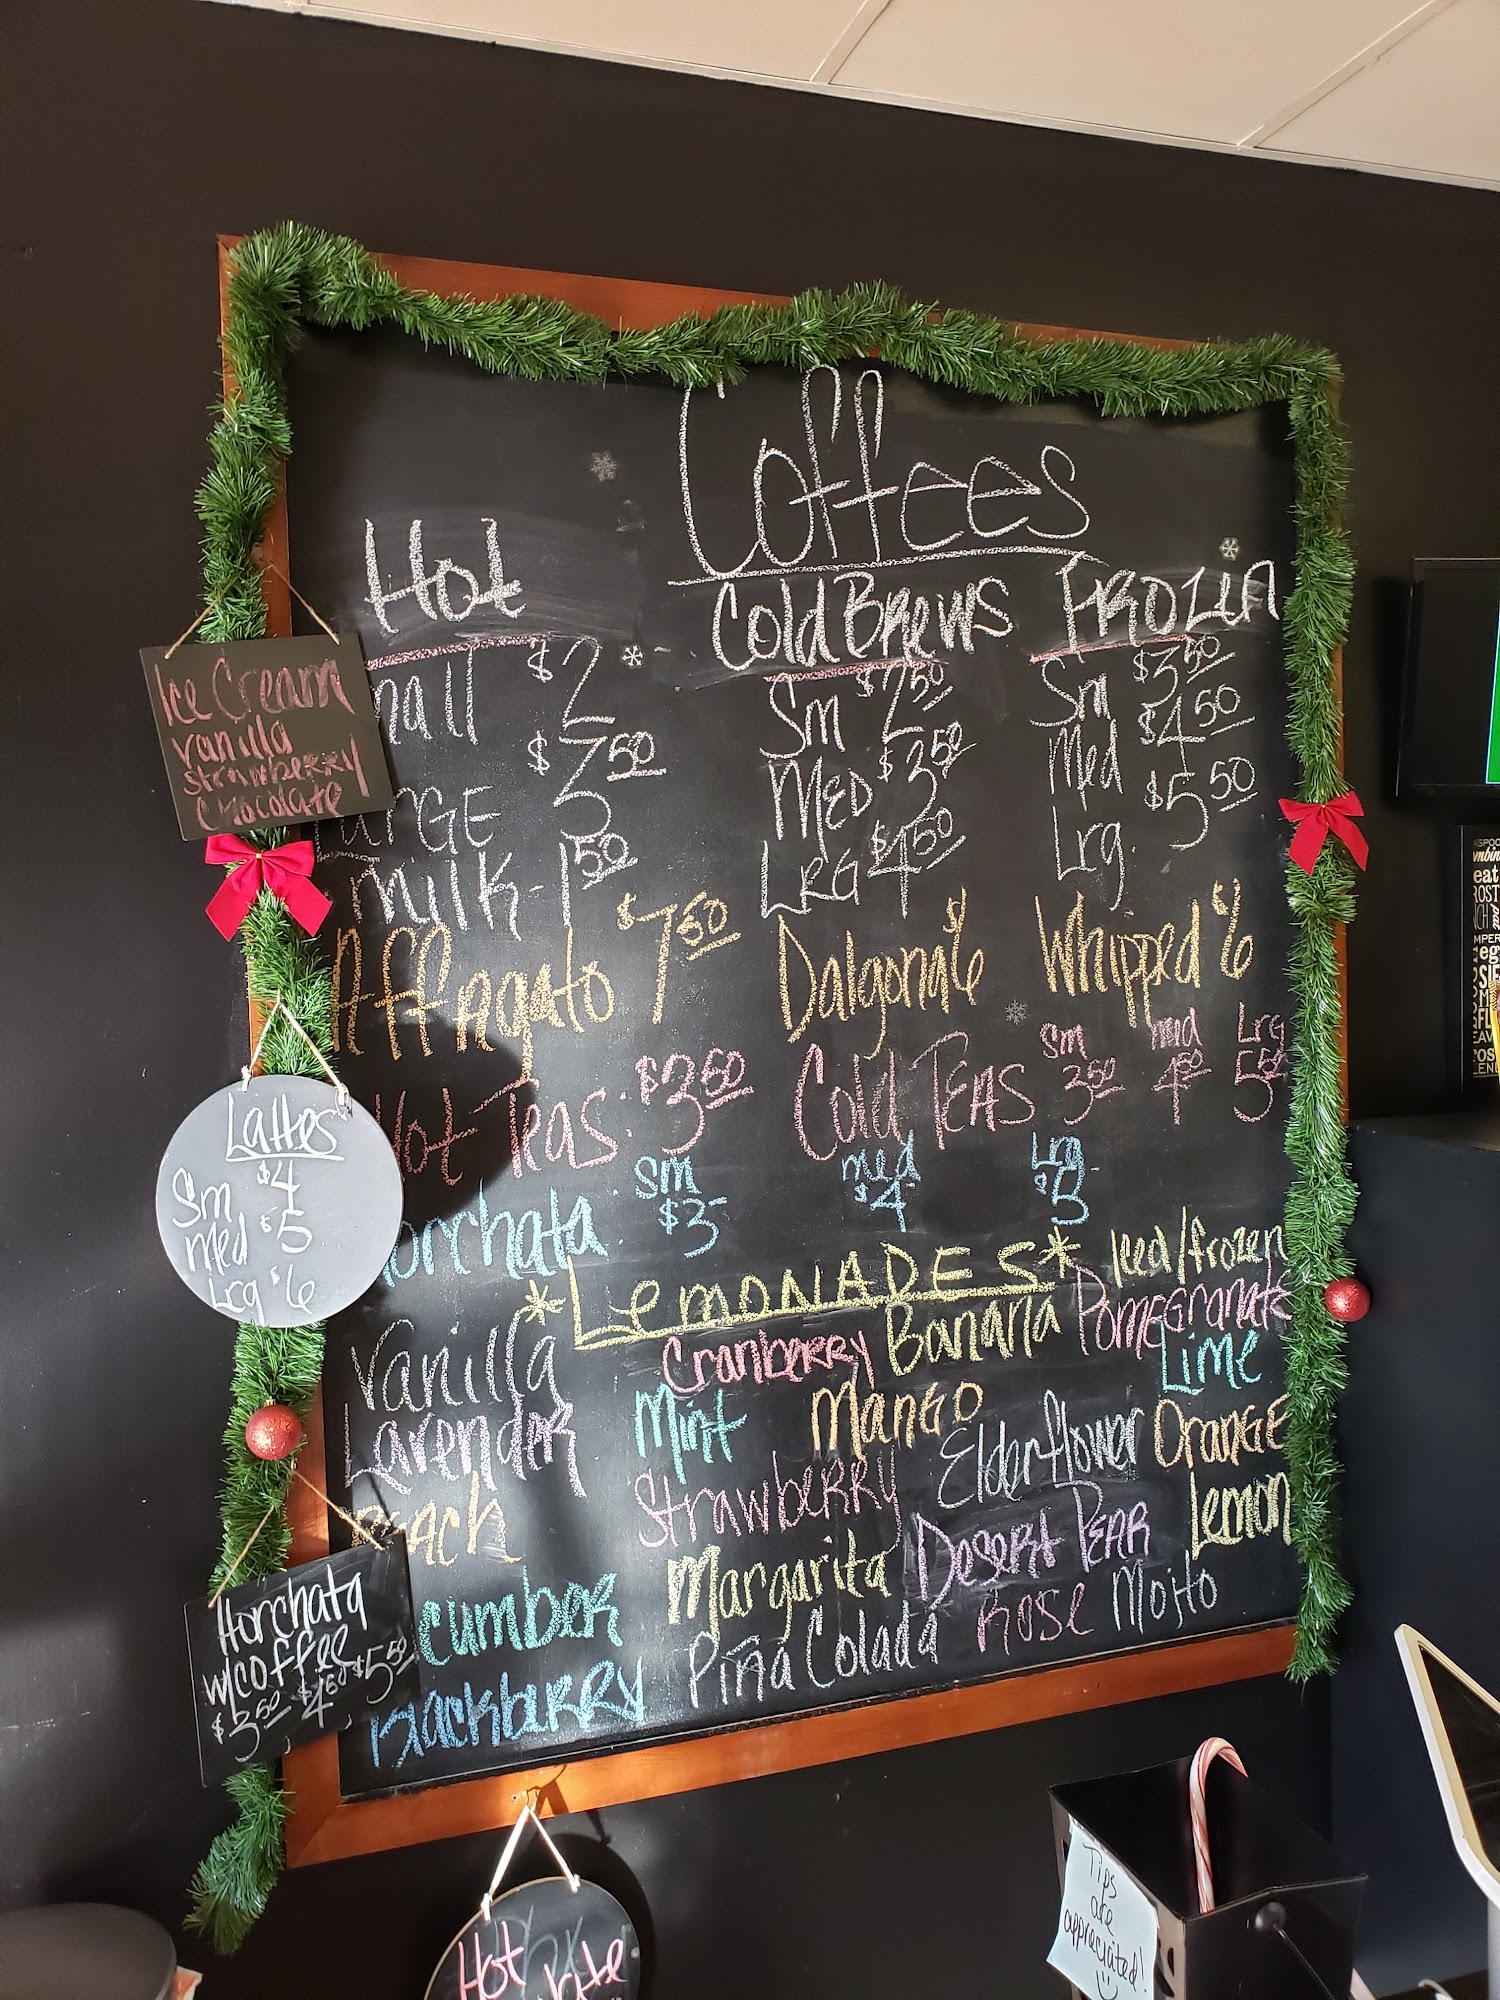 Coffees
Hot
Cold Brews
Frozin
nall $2
$2.50
arGE 3
milk - 1.50
Sm $2.50
MED $3.50
LRG $4.50
Sm $3.50
Med $4.50
Lrg. $5.50
Affagato $7.50
Dalgona $6
Whipped $6
Hot Teas: $3.50
Cold TEAS sm 3.50 med 4.50 Lrg 5.50
orchata sm $3 med $4 Lrg $5
*LemONADES* Iced/frozen
Vanilla
Cranberry
Banana
Pomegranate
Lavender
Mint
Mango
Lime
Peach
Strawberry
Elderflower
Orange
cumber
Margarita
Desert Pear
Lemon
Blackberry
Piña Colada
Rose
Mojito
Ice Cream
vanilla
strawberry
Chocolate
Lattes
Sm $4
med $5
Lrg $6
Horchata
w/coffee
$3.50 $4.50 $5.50
Hot
Tips
are
appreciated!
eat